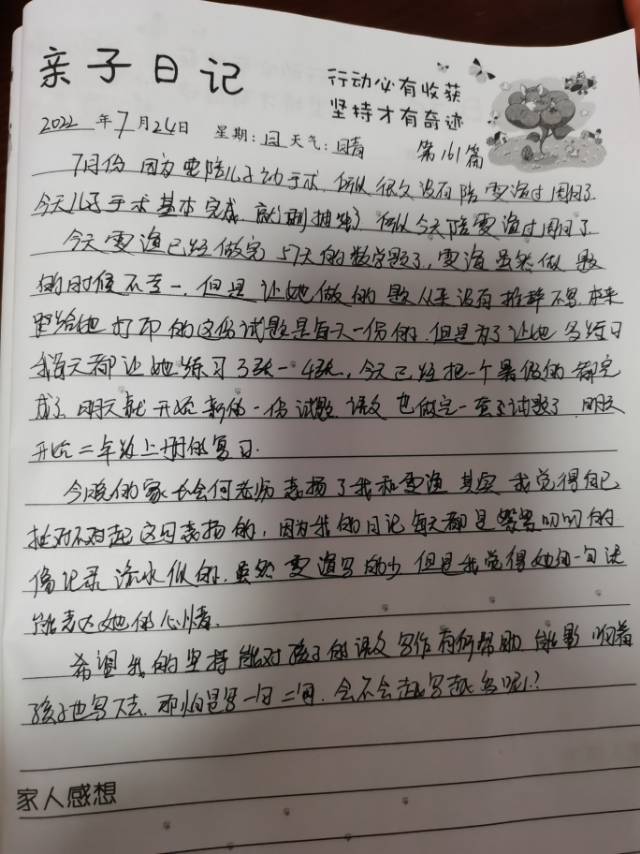 亲子日记
行动必有收获
坚持才有奇迹
2022年7月24日 星期:日 天气:晴 第161篇
7月份因为要陪儿子动手术,所以很久没有陪雯渲过周日了
今天儿子手术基本完成,就 抽 所以今天陪雯渲过周日了
今天雯渲已经做完57天的数学题了,雯渲虽然做题
的时候不专一,但是让她做的题从来没有推辞不写.本来
给她打印的这份试题是每天一份的,但是为了让她多练习
我每天都让她练习3张一4张,今天已经把一个暑假的都完
成了.明天就开始新的一份试题.语文也做完一 试题了.明天
开始二年级上册的复习.
今晚的家长会何老师表扬了我和雯渲 其实我觉得自己
挺对不对起这句表扬的,因为我的日记每天都是 叨叨的
像记录流水似的.虽然雯渲写的少但是我觉得她的一句话
能表达她的心情.
希望我的坚持能对孩子的语文写作有所帮助 能影响着
孩子也写下去.那怕是写一句二句.会不会越写越多呢!?
家人感想